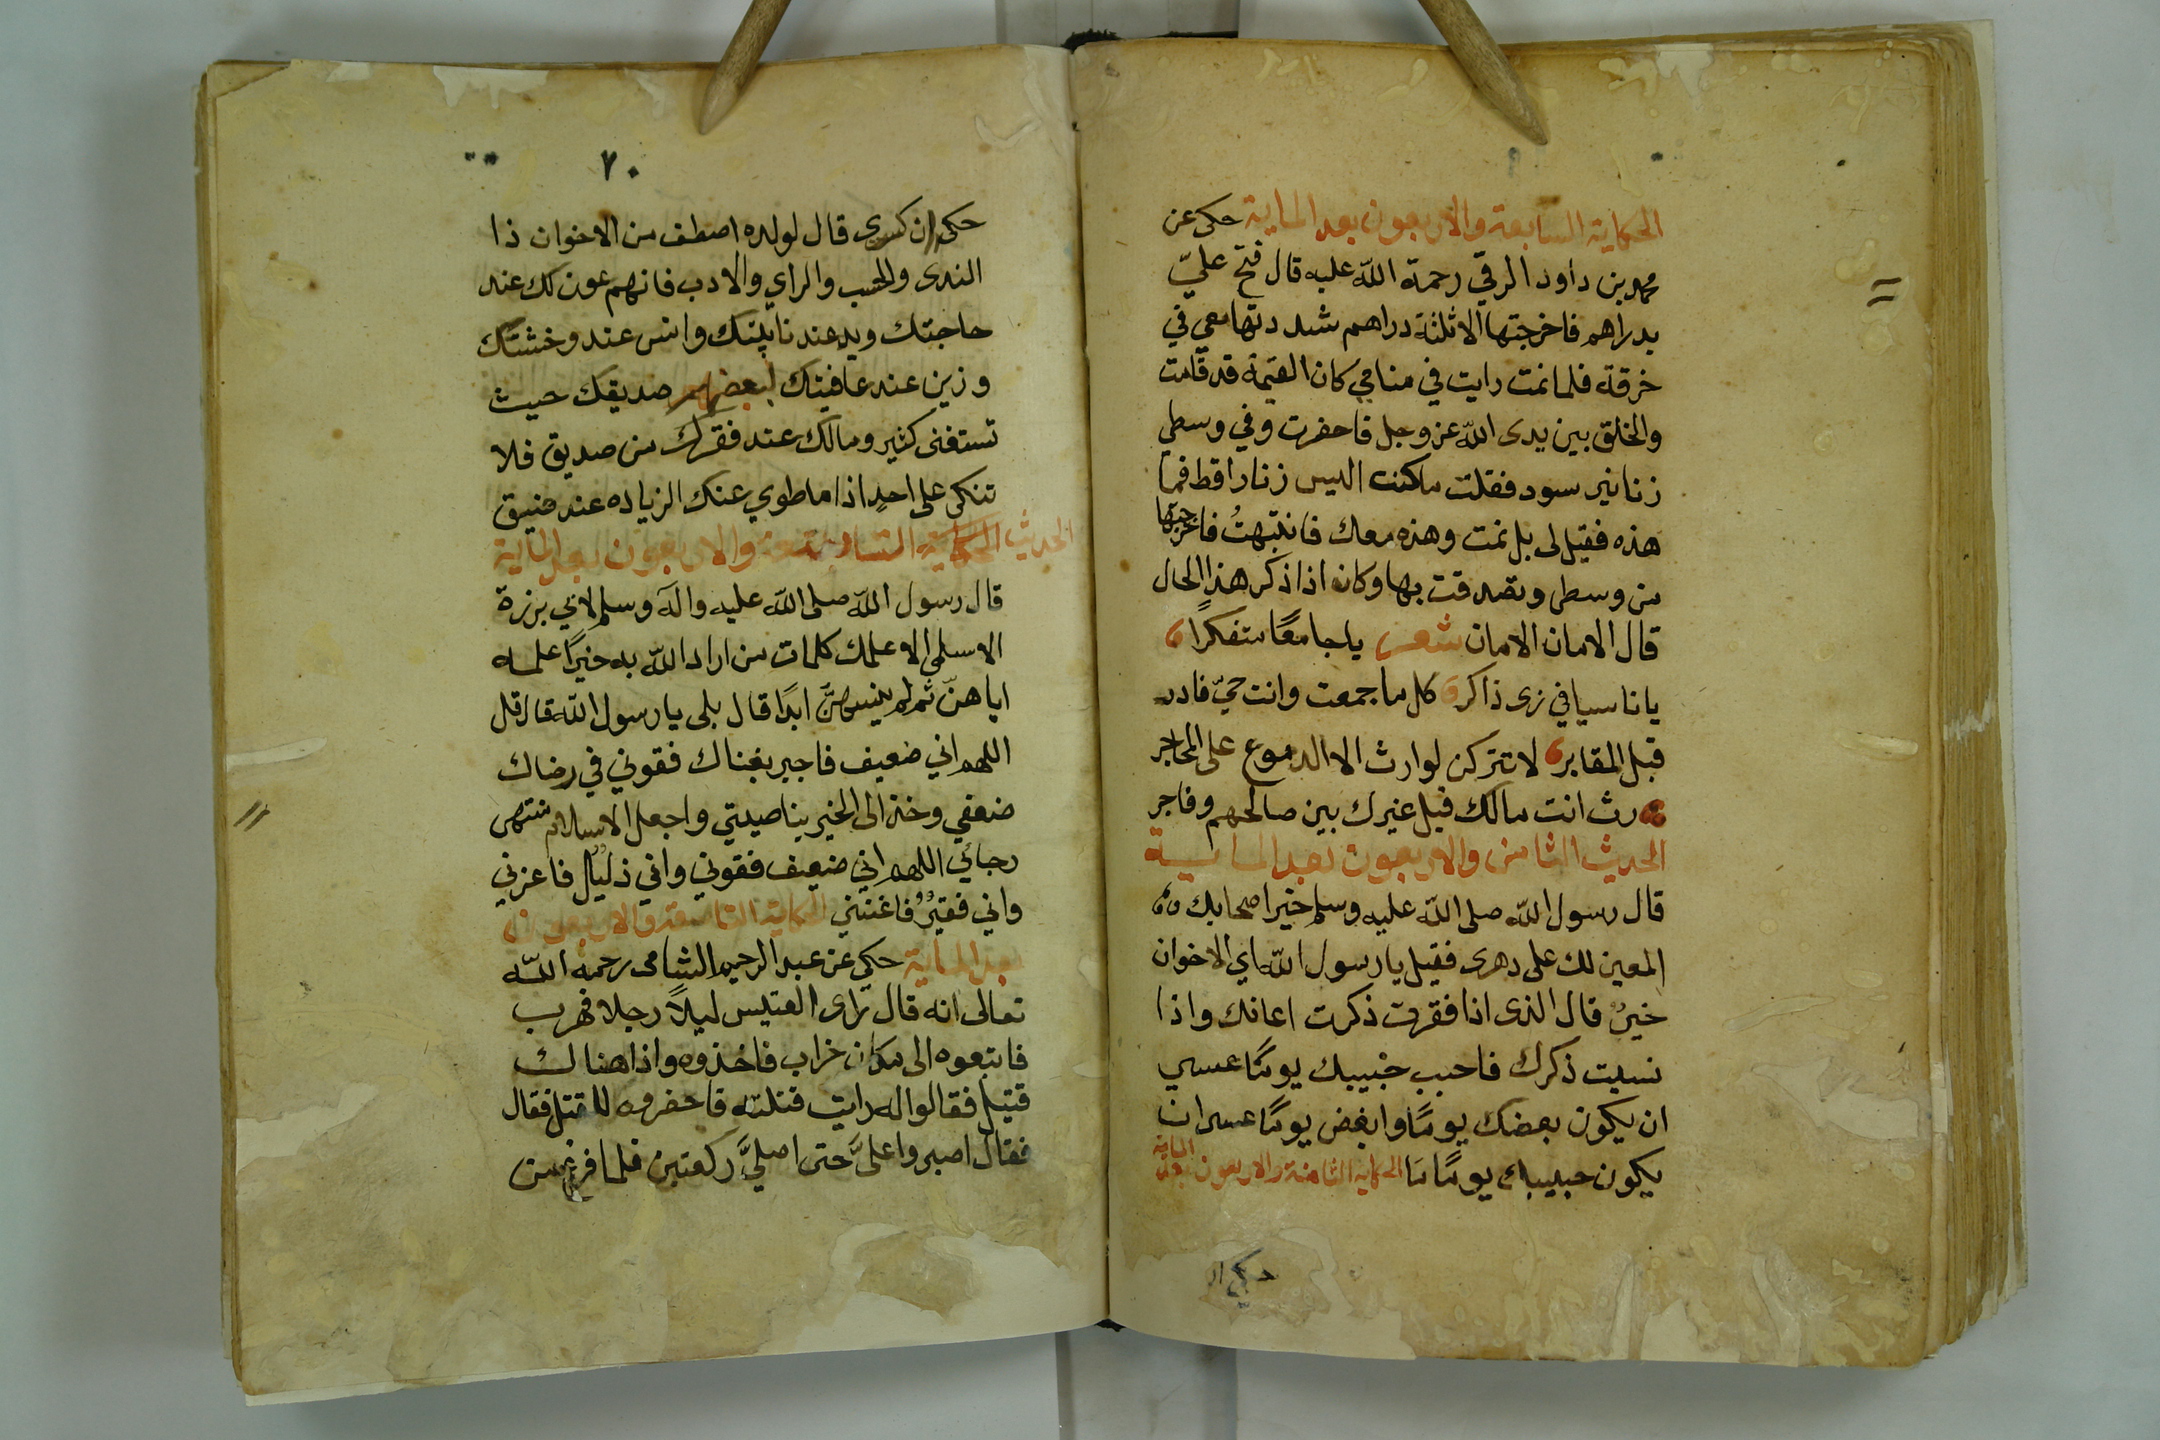 الحكاية السابعة والاربعون بعد الماية حكى عن
محمد بن داود الرقي رحمة الله عليه قال فتح عليّ
بدراهم فاخرجتها الا ثلثة دراهم شددتها معي في
خرقة فلما نمت رايت في منامي كان القيمة قد قامت
والخلق بين يدى الله عز وجل فاحضرت وفي وسطي
زنانير سود فقلت ماكنت البس زنارا قط فما
هذه فقيل لى بل نمت وهذه معك فانتبهتُ فاخرجتها
من وسطى وتصدقت بها وكان اذا ذكر هذا الحال
قال الامان الامان شعر ياجامعًا متفكرًا
يا ناسيا في زى ذاكر كل ما جمعت وانت حيّ قادر
قبل المقابر لا تتركن لوارث الا الدموع على المحاجر
رث انت مالك قبل غيرك بين صالحهم وفاجر
الحديث الثامن والاربعون بعد الماية
قال رسول الله صلى الله عليه وسلم خير اصحابك
المعين لك على دهرى فقيل يا رسول الله اي الاخوان
خيرٌ قال الذى اذا فقرت ذكرت اعانك واذا
نسيت ذكرك فاحبب حبيبك يومًا عسي
ان يكون بعضك يومًا وابغض يومًا عسى ان
يكون حبيبك يومًا مَا الحكاية الثامنة والاربعون بعد الماية
حكي ان
٧٠
حكى ان كسرى قال لولده اصطف من الاخوان ذا
الندى والحسب والراي والادب فانهم عون لك عند
حاجتك ويد عند نايبتك وانس عند وخشتك
وزين عند عافيتك لبعضهم صديقك حيث
تستغنى كثير ومالك عند فقرك من صديق فلا
تنكر على احدٍ اذا ما طوي عنك الزياده عند ضيق
الحديث التاسعة والاربعون بعد الماية
قال رسول الله صلى الله عليه واله وسلم لابي برزة
الاسلمي الا اعلمك كلمات من اراد الله به خيرًا علمه
اياهنّ ثم لم ينسهنّ ابدًا قال بلى يا رسول الله قال قل
اللهم اني ضعيف فاجبر بغناك فقوني في رضاك
ضعفي وخذ الى الخير بناصيتي واجعل الاسلام منتهى
رجائي اللهم اني ضعيف فقوني واني ذليل فاعزني
واني فقيرٌ فاغنني الحكاية التاسعة والاربعون
بعد الماية حكي عن عبد الرحيم الشامى رحمه الله
تعالى انه قال راى العتيس ليلاً رجلا فهرب
فاتبعوه الى مكان خراب فاخذوه واذا هنالك
قتيل فقالوا له رايت قتلته فاحضروه للقتل فقال
فقال اصبروا عليَّ حتى اصليَّ ركعتين فلما فرغ من